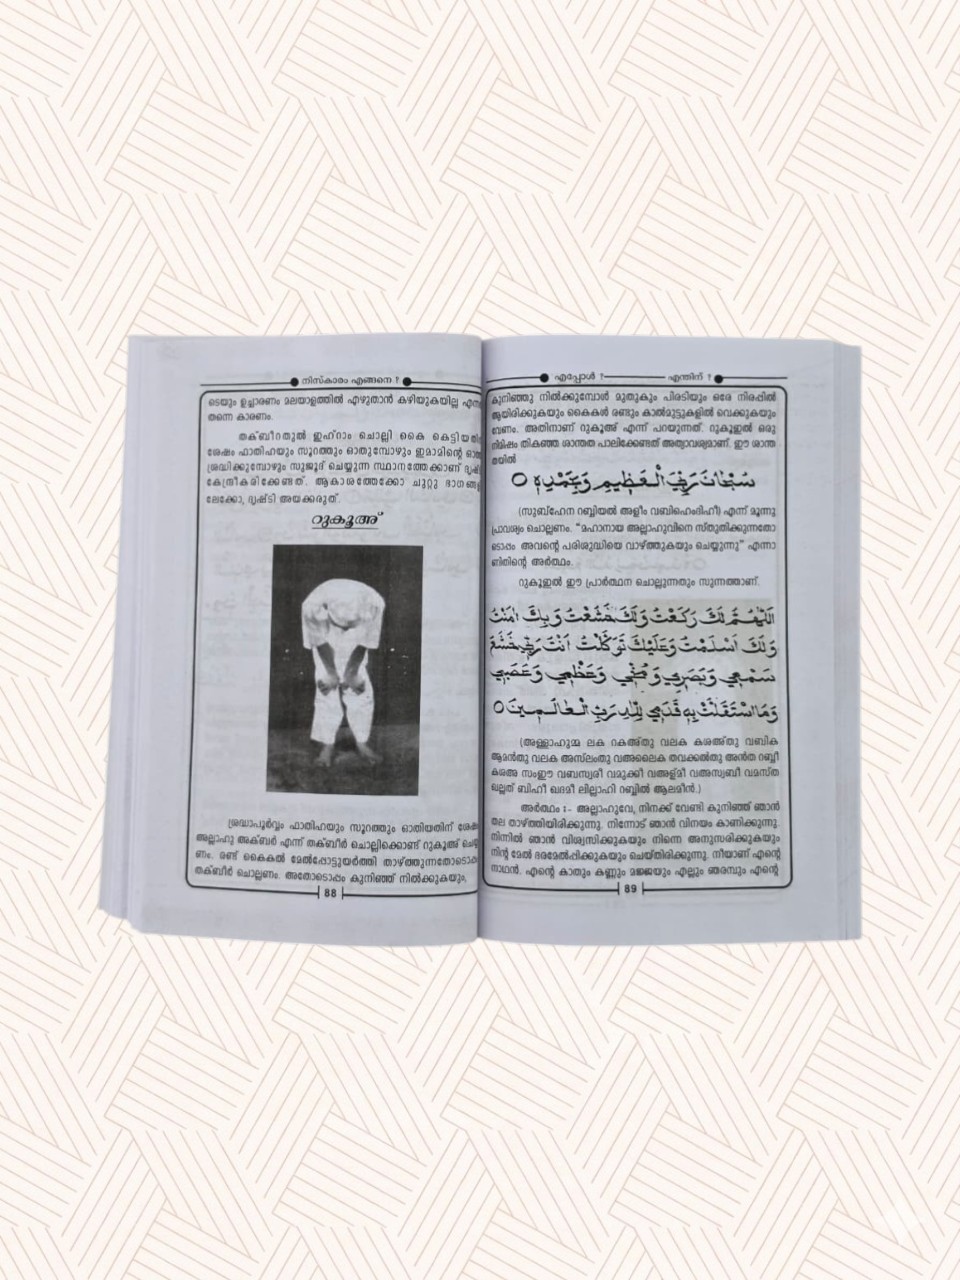 നിസ്കാരം എങ്ങനെ ?
ടെയും ഉച്ചാരണം മലയാളത്തിൽ എഴുതാൻ കഴിയുകയില്ല
തന്നെ കാരണം.
തക്ബീറതുൽ ഇഹ്റാം ചൊല്ലി കൈ കെട്ടിയ
ശേഷം ഫാതിഹയും സൂറത്തും ഓതുമ്പോഴും ഇമാമിന്റെ
ശ്രദ്ധിക്കുമ്പോഴും സുജൂദ് ചെയ്യുന്ന സ്ഥാനത്തേക്കാണ്
കേന്ദ്രീകരിക്കേണ്ടത്. ആകാശത്തേക്കോ ചുറ്റു
ലേക്കോ, ദൃഷ്ടി അയക്കരുത്.
റുകൂഅ്
ശ്രദ്ധാപൂർവ്വം ഫാതിഹയും സൂറത്തും ഓതിയതിന്
അല്ലാഹു അക്ബർ എന്ന് തക്ബീർ ചൊല്ലിക്കൊണ്ട് റുകൂഅ്
ണം. രണ്ട് കൈകൽ മേൽപ്പോട്ടുയർത്തി
തക്ബീർ ചൊല്ലണം. അതോടൊപ്പം കുനിഞ്ഞ് നിൽക്കുകയും,
88
എപ്പോൾ ? എന്തിന് ?
കുനിഞ്ഞു നിൽക്കുമ്പോൾ മുതുകും പിരടിയും ഒരേ നിരപ്പിൽ
ആയിരിക്കുകയും കൈകൾ രണ്ടും കാൽമുട്ടുകളിൽ വെക്കുകയും
വേണം. അതിനാണ് റുകൂഅ് എന്ന് പറയുന്നത്. റുകൂഇൽ ഒരു
നിമിഷം തികഞ്ഞ ശാന്തത പാലിക്കേണ്ടത് അത്യാവശ്യമാണ്. ഈ ശാന്ത
തയിൽ
سُبْحَانَ رَبِّيَ الْعَظِيمِ وَبِحَمْدِهِ
(സുബ്ഹേന റബ്ബിയൽ അളീം വബിഹെംദിഹീ) എന്ന് മൂന്നു
പ്രാവശ്യം ചൊല്ലണം. "മഹാനായ അല്ലാഹുവിനെ സ്തുതിക്കുന്നതോ
ടൊപ്പം അവന്റെ പരിശുദ്ധിയെ വാഴ്ത്തുകയും ചെയ്യുന്നു" എന്നാ
ണിതിന്റെ അർത്ഥം.
റുകൂഇൽ ഈ പ്രാർത്ഥന ചൊല്ലുന്നതും സുന്നത്താണ്.
اَللّٰهُمَّ لَكَ رَكَعْتُ وَلَكَ خَشَعْتُ وَبِكَ اٰمَنْتُ
وَلَكَ اَسْلَمْتُ وَعَلَيْكَ تَوَكَّلْتُ اَنْتَ رَبِّي خَشَعَ
سَمْعِي وَبَصَرِي وَمُخِّي وَعَظْمِي وَعَصَبِي
وَمَا اسْتَقَلَّتْ بِهِ قَدَمِي لِلّٰهِ رَبِّ الْعَالَمِينَ
(അള്ളാഹുമ്മ ലക റകഅ്തു വലക കശഅ്തു വബിക
ആമൻതു വലക അസ്ലംതു വഅലൈക തവക്കൽതു അൻത റബ്ബീ
കശഅ സംഈ വബസ്വരീ വമുക്കീ വഅള്മീ വഅസ്വബീ വമസ്ത
ഖല്ലത് ബിഹീ ഖദമീ ലില്ലാഹി റബ്ബിൽ ആലമീൻ.)
അർത്ഥം :- അല്ലാഹുവേ, നിനക്ക് വേണ്ടി കുനിഞ്ഞ് ഞാൻ
തല താഴ്ത്തിയിരിക്കുന്നു. നിന്നോട് ഞാൻ വിനയം കാണിക്കുന്നു.
നിന്നിൽ ഞാൻ വിശ്വസിക്കുകയും നിന്നെ അനുസരിക്കുകയും
നിന്റ മേൽ ഭരമേൽപ്പിക്കുകയും ചെയ്തിരിക്കുന്നു. നീയാണ് എന്റെ
നാഥൻ. എന്റെ കാതും കണ്ണും മജ്ജയും എല്ലും ഞരമ്പും എന്റെ
89